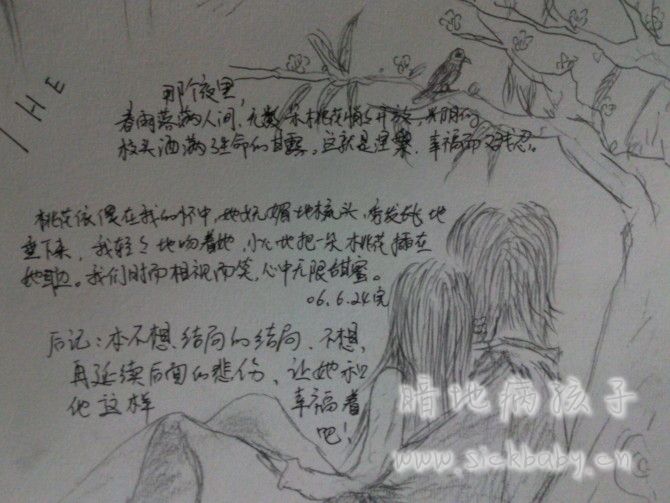 THE
那个夜里，
春雨落满人间，无数朵桃花悄悄开放，
枝头洒满生命的甘露。这就是涅槃，幸福而又残忍。
桃花依偎在我的怀中，她妩媚地梳头，秀发地
垂下来，我轻轻地吻着她，小心地把一朵桃花插在
她耳边。我们时而相视而笑，心中无限甜蜜。
06.6.24完
后记：本不想结局的结局，不想，
再延续后面的悲伤，让她和
他这样 幸福着
吧！
暗地病孩子
www.sickbaby.cn